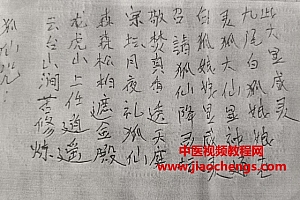 狐仙咒:
云台山涧苦修炼
龙虎山上任逍遥
森森松柏遮金殿
月夜礼狐仙
敬焚真香透天庭
召請狐仙降
白狐娘娘显威灵
灵狐大仙显神通
九尾白狐娘娘
大显威灵
中医视频教程网
zyspjcw.com